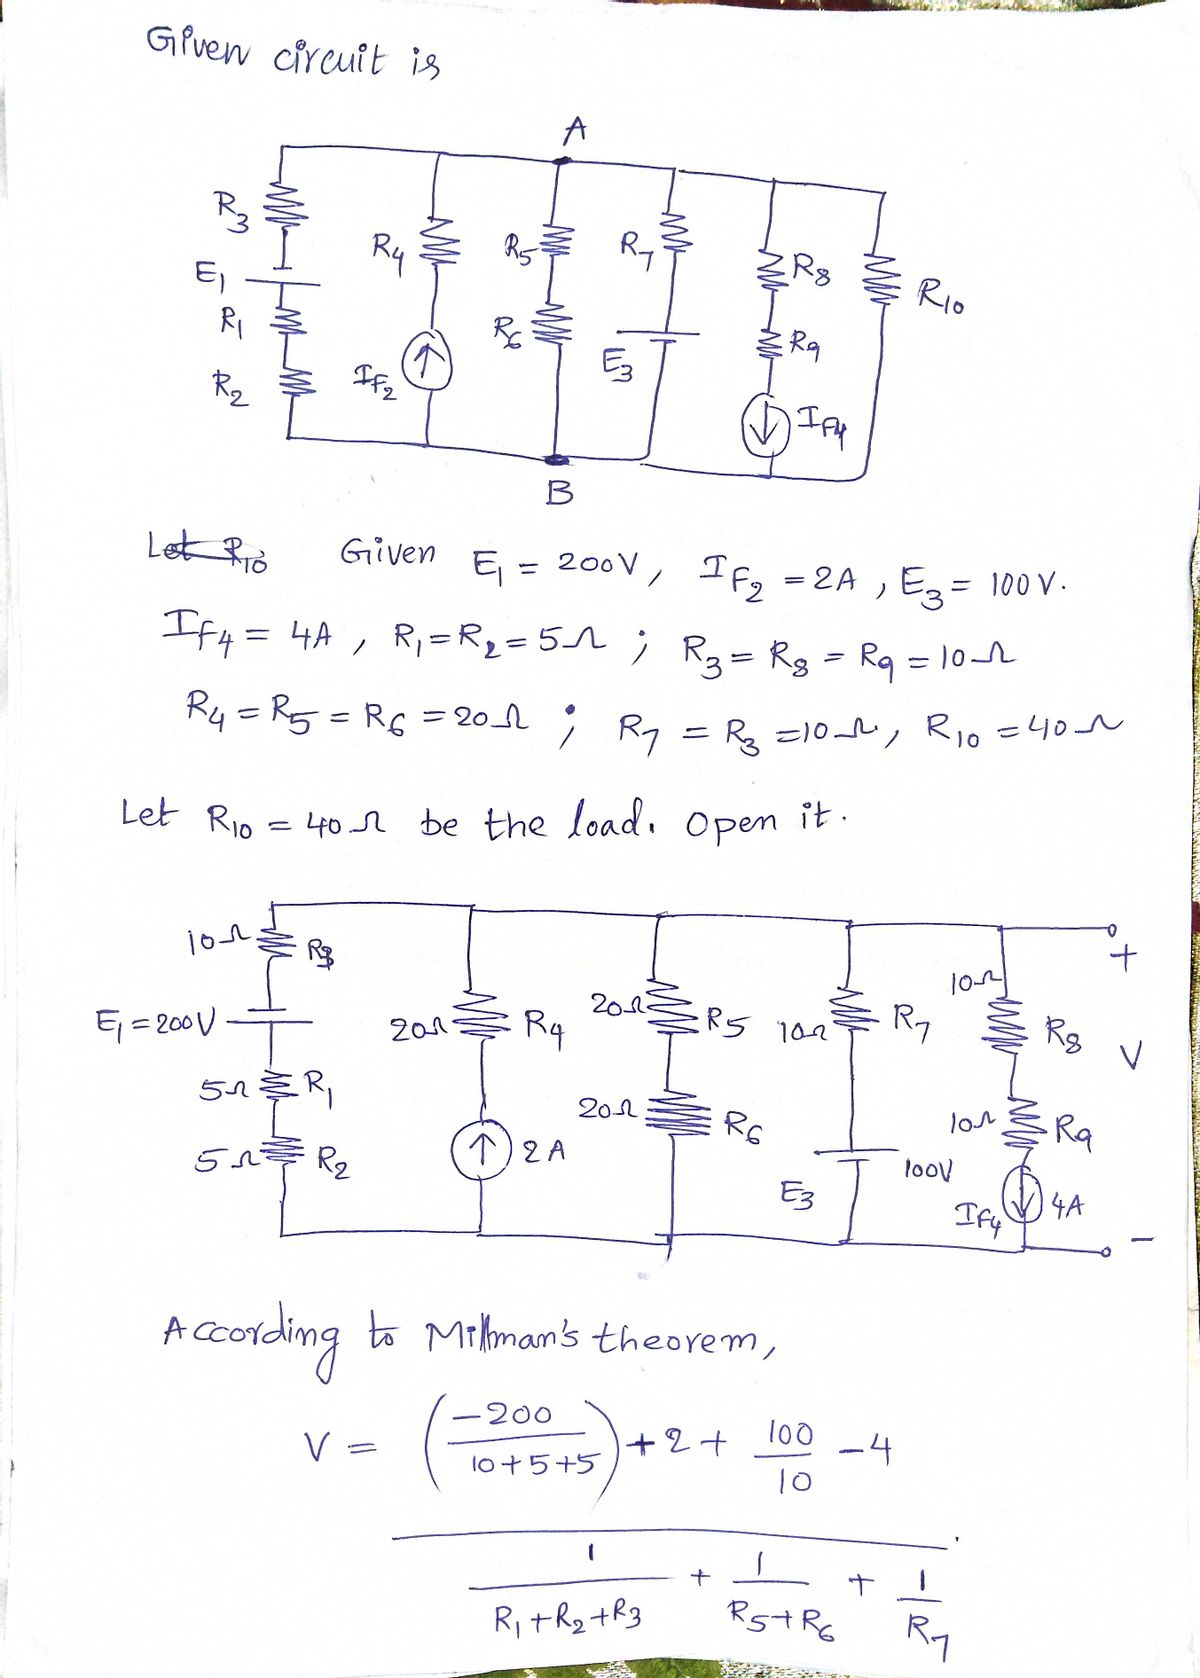 Given circuit is
A
R3
E1
R1
R2
R4
IF2
R5
R6
R7
E3
R8
R9
IF4
R10
B
Let R10 Given E1 = 200V, IF2 = 2A, E3 = 100V.
IF4 = 4A, R1 = R2 = 5Ω ; R3 = R8 = R9 = 10Ω
R4 = R5 = R6 = 20Ω ; R7 = R3 = 10Ω, R10 = 40Ω
Let R10 = 40Ω be the load. Open it.
10Ω R3
E1 = 200V
5Ω R1
5Ω R2
20Ω R4
2A
20Ω R5
20Ω R6
10Ω R7
E3 100V
10Ω R8
10Ω R9
IF4 4A
+
V
-
According to Millman's theorem,
V = (-200 / 10+5+5) + 2 + 100/10 - 4
1 / R1+R2+R3 + 1 / R5+R6 + 1 / R7